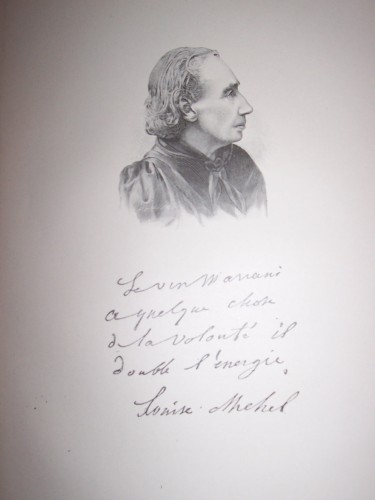 Le vin Mariani
a quelque chose
de la volonté il
double l'énergie.
Louise Michel